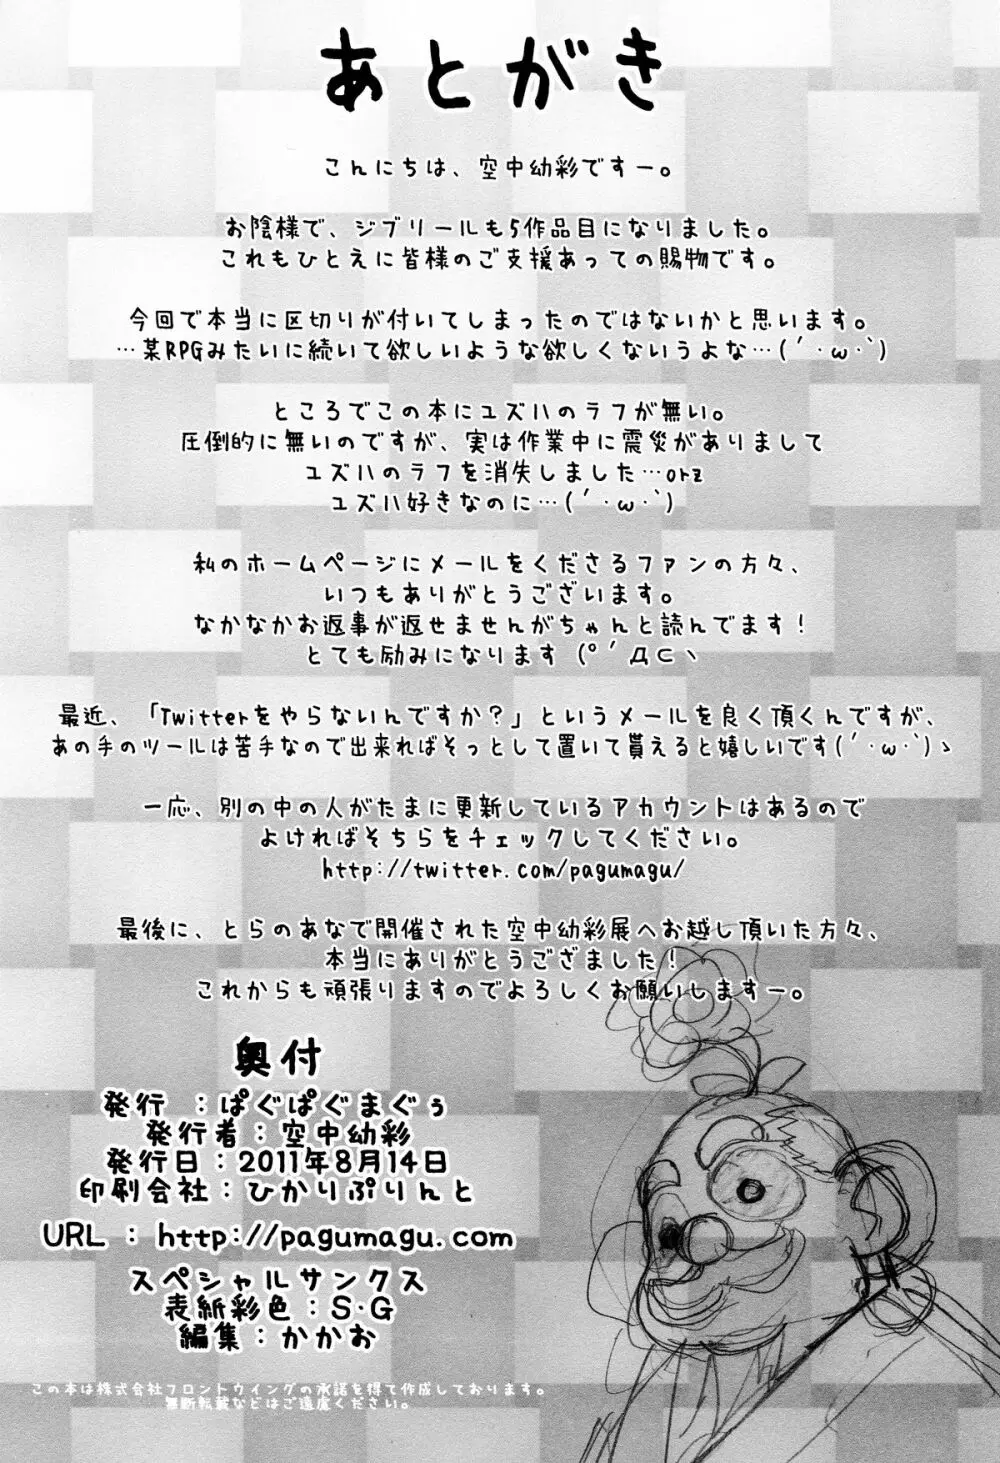 あとがき
こんにちは、空中幼彩ですー。
お陰様で、ジブリールも5作品目になりました。
これもひとえに皆様のご支援あっての賜物です。
今回で本当に区切りが付いてしまったのではないかと思います。
…某RPGみたいに続いて欲しいような欲しくないうよな…(´・ω・`)
ところでこの本にユズハのラフが無い。
圧倒的に無いのですが、実は作業中に震災がありまして
ユズハのラフを消失しました…orz
ユズハ好きなのに…(´・ω・`)
私のホームページにメールをくださるファンの方々、
いつもありがとうございます。
なかなかお返事が返せませんがちゃんと読んでます!
とても励みになります (°´Д⊂ヽ
最近、「Twitterをやらないんですか?」というメールを良く頂くんですが、
あの手のツールは苦手なので出来ればそっとして置いて貰えると嬉しいです(´・ω・`)ゝ
一応、別の中の人がたまに更新しているアカウントはあるので
よければそちらをチェックしてください。
http://twitter.com/pagumagu/
最後に、とらのあなで開催された空中幼彩展へお越し頂いた方々、
本当にありがとうござました!
これからも頑張りますのでよろしくお願いしますー。
奥付
発行 :ぱぐぱぐまぐぅ
発行者:空中幼彩
発行日:2011年8月14日
印刷会社:ひかりぷりんと
URL : http://pagumagu.com
スペシャルサンクス
表紙彩色:S・G
編集:かかお
この本は株式会社フロントウイングの承諾を得て作成しております。
無断転載などはご遠慮ください。